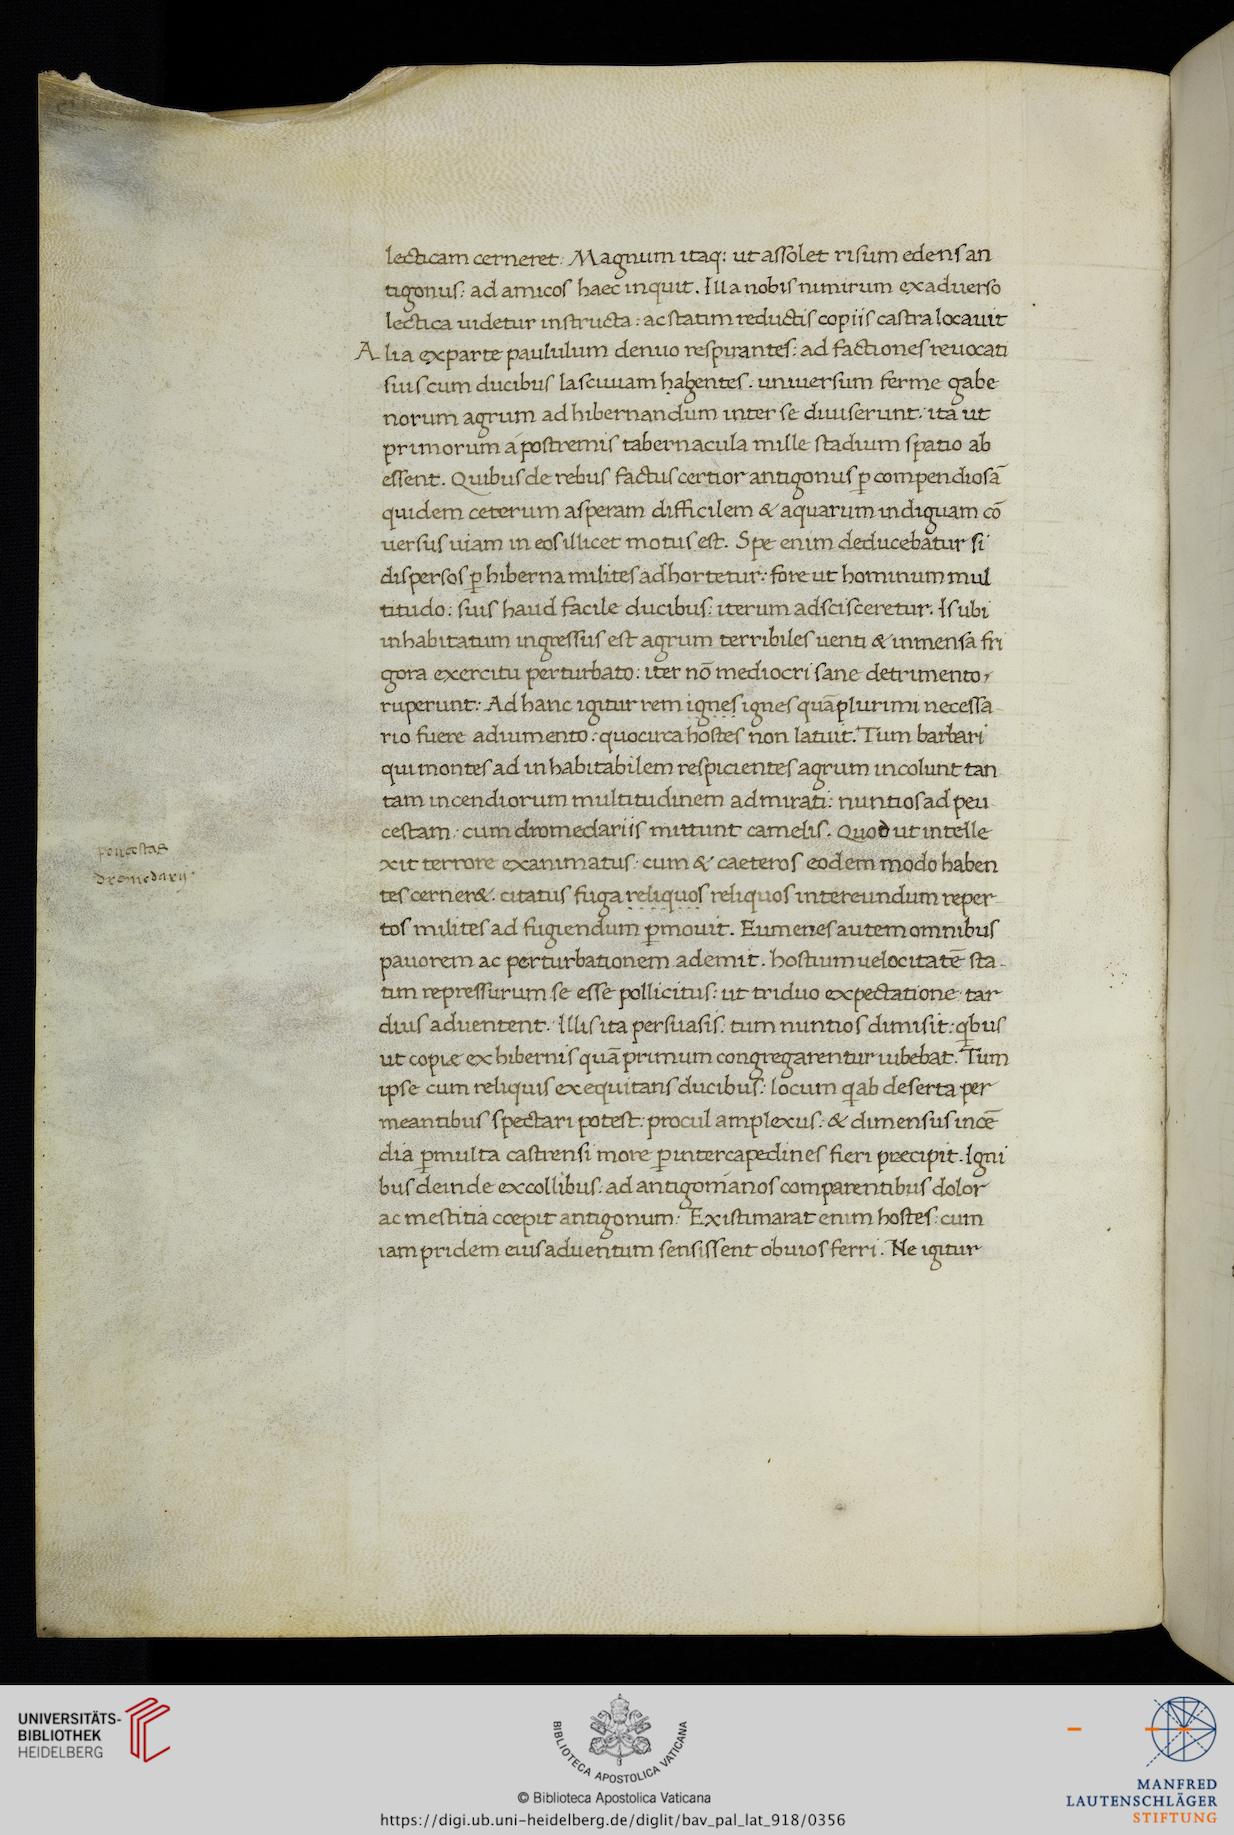 lecticam cerneret: Magnum itaq; ut assolet risum edens an
tigonus: ad amicos haec inquit. Illa nobis nimirum ex adverso
lectica uidetur instructa: ac statim reductis copiis castra locavit
Alia ex parte paululum denuo respirantes: ad factiones revocati
suis cum ducibus lascivuam habentes. universum ferme gabe
norum agrum ad hibernandum inter se diviserunt: ita ut
primorum a postremis tabernacula mille stadium spatio ab
essent. Quibus de rebus factus certior antigonus p̲ compendiosā
quidem ceterum asperam difficilem & aquarum indiguam cō
versus uiam in eos illicet motus est. Spe enim deducebatur si
dispersos p̲ hiberna milites adhortetur: fore ut hominum mul
titudo: suis haud facile ducibus: iterum adscisceretur. Is ubi
inhabitatum ingressus est agrum terribiles uenti & inmensa fri
gora exercitu perturbato: iter nō mediocri sane detrimento,
ruperunt: Ad hanc igitur rem ignes ignes quā plurimi necessa
rio fuere adiumento: quocirca hostes non latuit. Tum barbari
qui montes ad inhabitabilem respicientes agrum incolunt tan
tam incendiorum multitudinem admirati: nuntios ad peu
cestam: cum dromedariis mittunt camelis. Quod ut intelle
xit terrore exanimatus: cum & caeteros eodem modo haben
tes cerner&: citatus fuga reliquos reliquos intereundum reper
tos milites ad fugiendum p̲movit. Eumenes autem omnibus
pavorem ac perturbationem ademit. hostium uelocitatē sta-
tim repressurum se esse pollicitus: ut triduo expectatione tar
dius adventent. Illis ita persuasis: tum nuntios dimisit: qbus
ut copie ex hibernis quā primum congregarentur iubebat. Tum
ipse cum reliquis exequitans ducibus: locum q ab deserta per
meantibus spectari potest: procul amplexus: & dimensus incē
dia p̲multa castrensi more p̲ intercapedines fieri precipit. Igni
bus deinde ex collibus: ad antigonianos comparentibus dolor
ac mestitia cœpit antigonum: Existimarat enim hostes: cum
iam pridem eius adventum sensissent obvios ferri. Ne igitur
peucestas
dromedarij.
UNIVERSITÄTS-
BIBLIOTHEK
HEIDELBERG
BIBLIOTECA APOSTOLICA VATICANA
© Biblioteca Apostolica Vaticana
https://digi.ub.uni-heidelberg.de/diglit/bav_pal_lat_918/0356
MANFRED
LAUTENSCHLÄGER
STIFTUNG